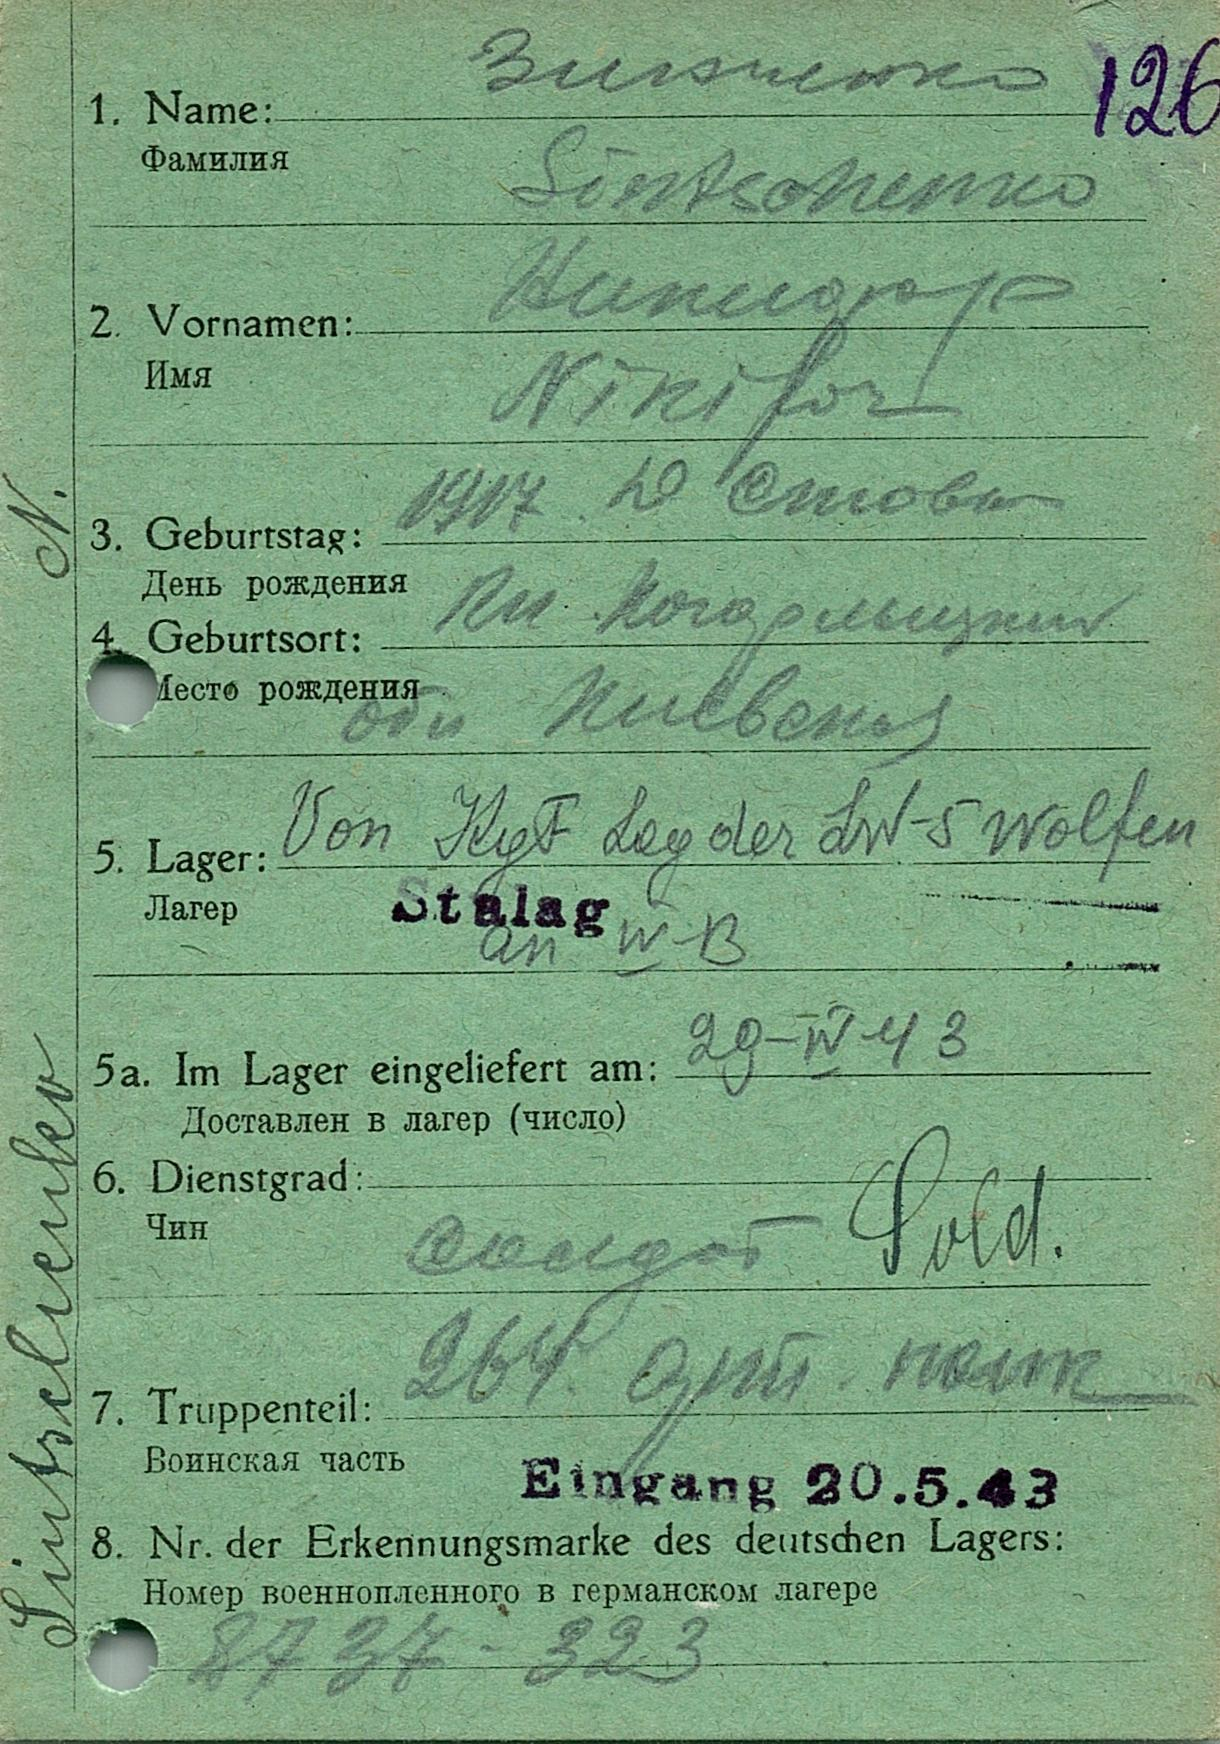 126
Зинченко
1. Name:
Фамилия
Sintschenko
Никифор
2. Vornamen:
Имя
Nikifor
1917. D Стовы
3. Geburtstag:
День рождения
Рн.
4. Geburtsort:
Место рождения
обл Киевская
Von KgF Lag der LW-5 Wolfen
5. Lager:
Лагер
Stalag
an IV-B
29-IV-43
5a. Im Lager eingeliefert am:
Доставлен в лагер (число)
6. Dienstgrad:
Чин
Солдат Sold.
264. арт. полк
7. Truppenteil:
Воинская часть
Eingang 20.5.43
8. Nr. der Erkennungsmarke des deutschen Lagers:
Номер военнопленного в германском лагере
8737-323
Sintschenko N.